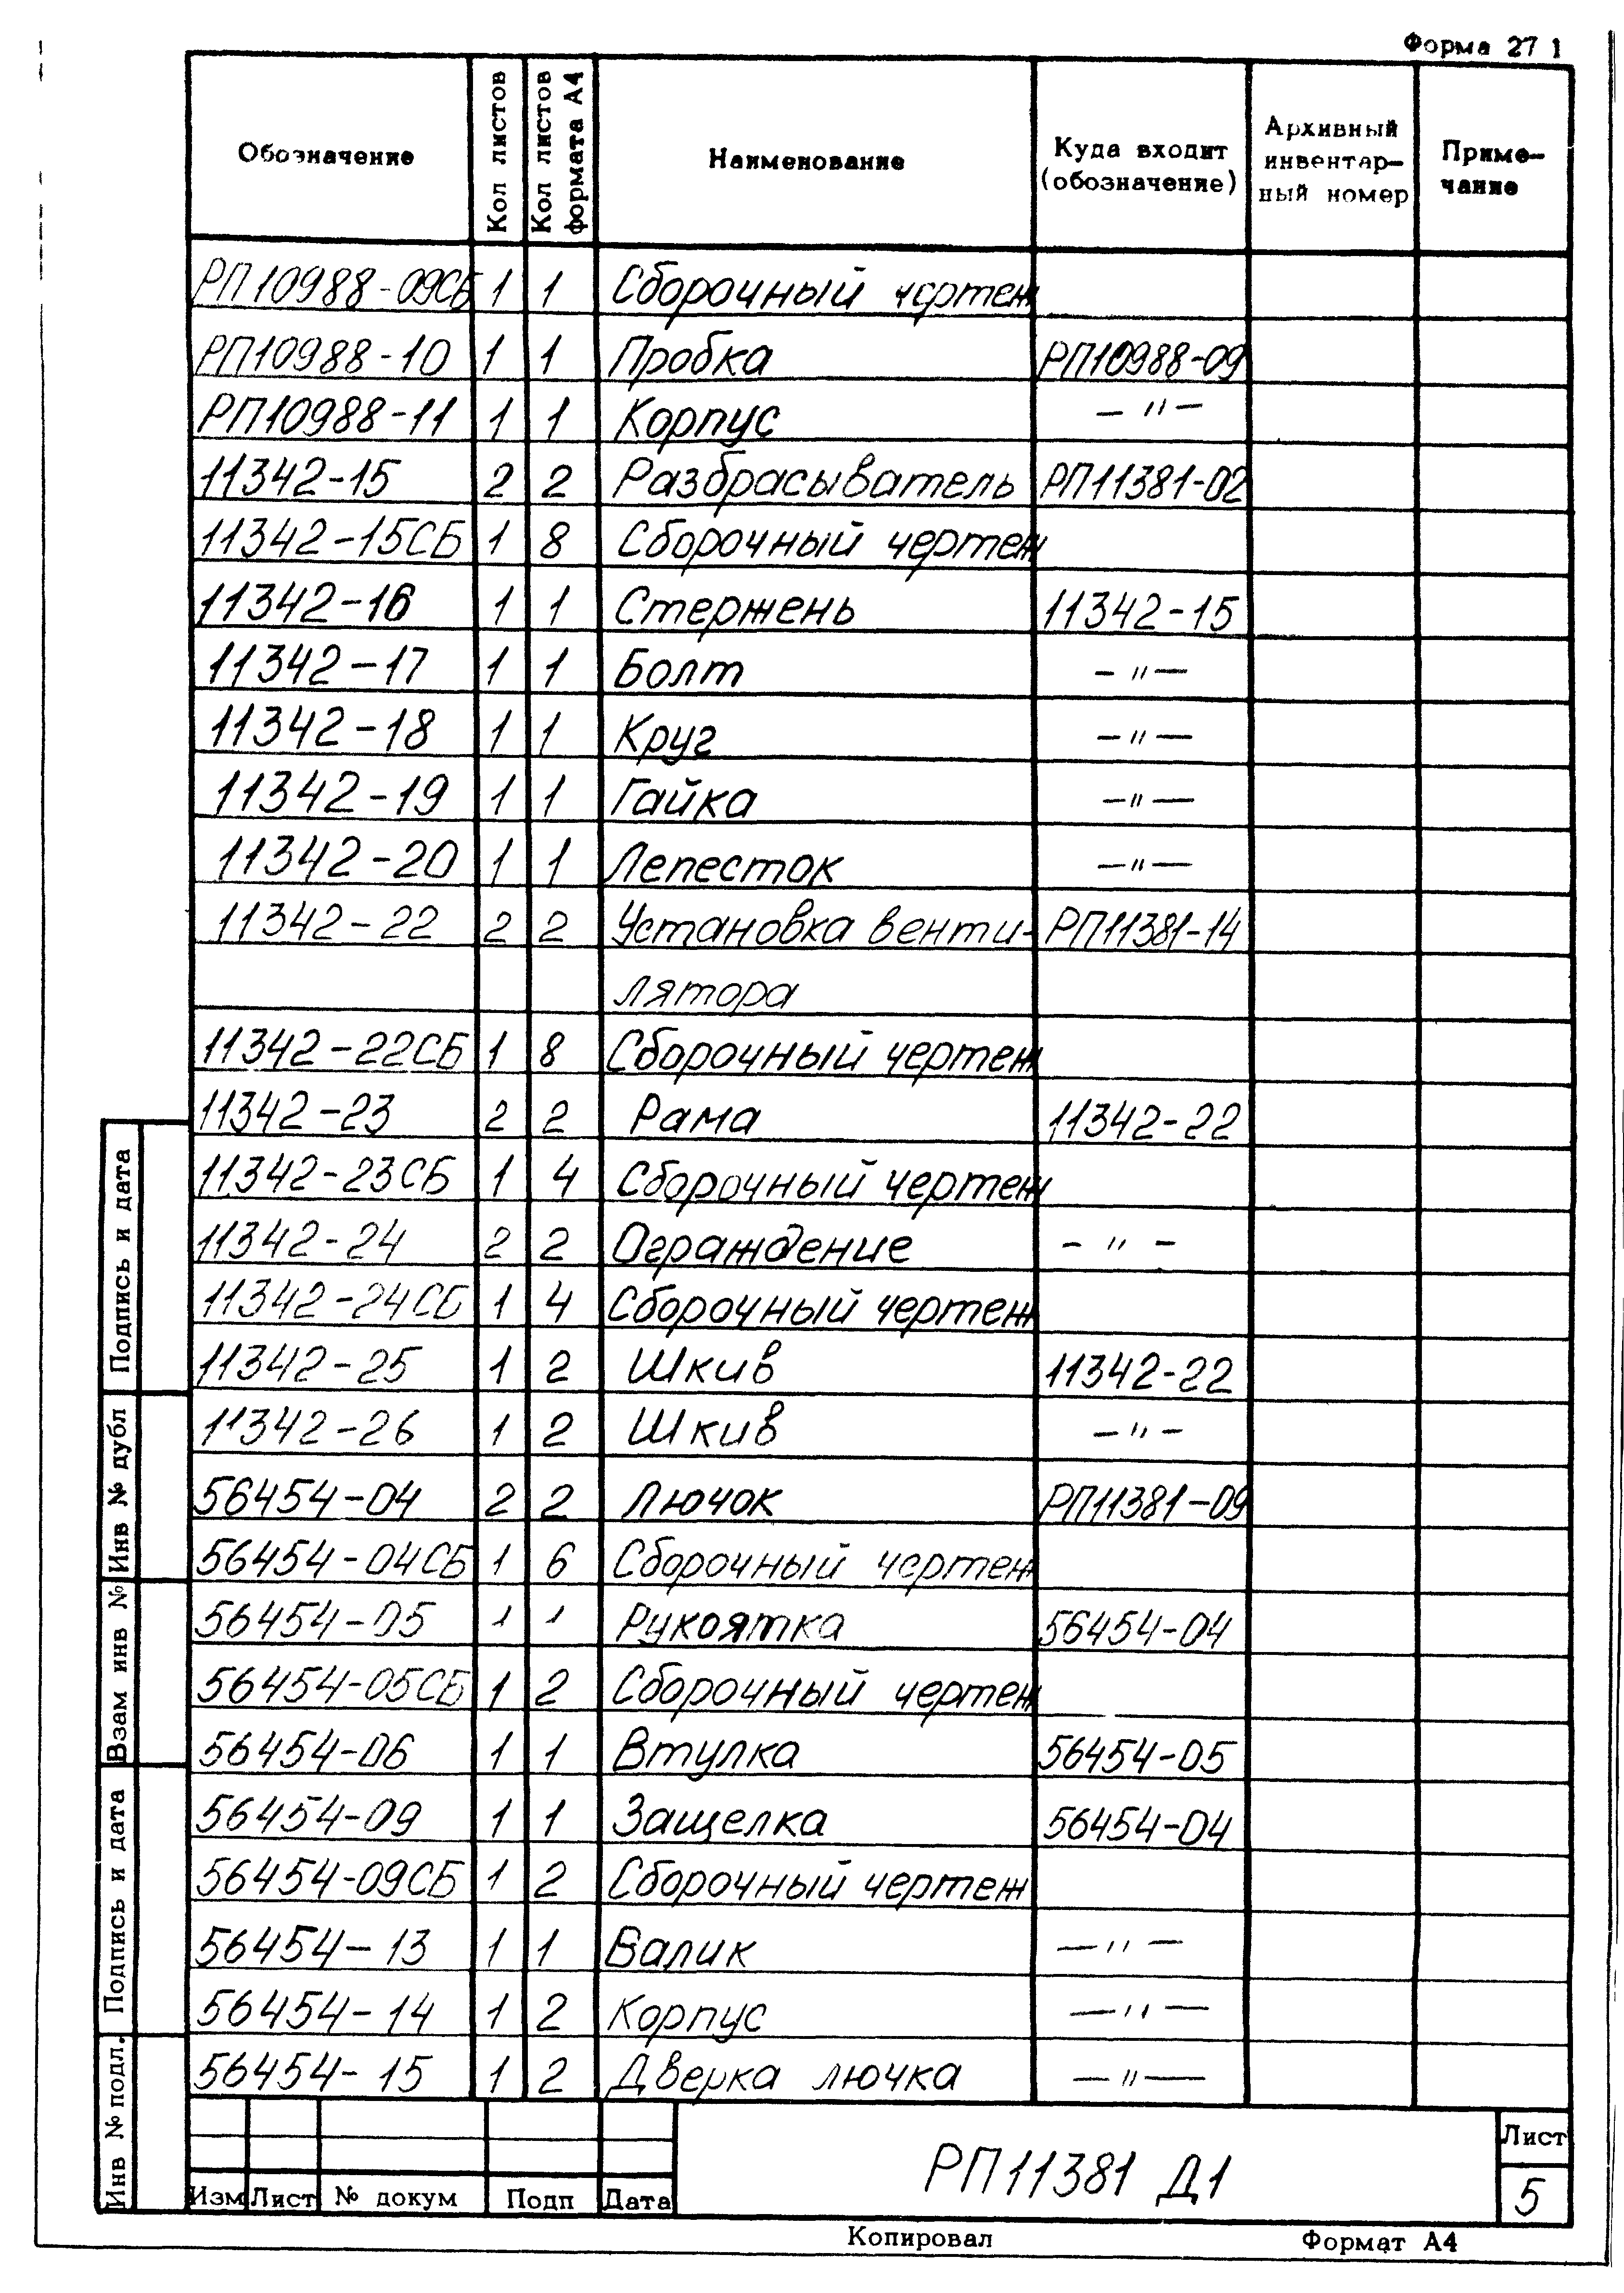 Форма 27 1
Обозначение Кол листов Кол листов формата А4 Наименование Куда входит (обозначение) Архивный инвентар- ный номер Приме- чание
РП10988-09СБ 1 1 Сборочный чертеж
РП10988-10 1 1 Пробка РП10988-09
РП10988-11 1 1 Корпус —"—
11342-15 2 2 Разбрасыватель РП11381-02
11342-15СБ 1 8 Сборочный чертеж
11342-16 1 1 Стержень 11342-15
11342-17 1 1 Болт —"—
11342-18 1 1 Круг —"—
11342-19 1 1 Гайка —"—
11342-20 1 1 Лепесток —"—
11342-22 2 2 Установка венти- РП11381-14
лятора
11342-22СБ 1 8 Сборочный чертеж
11342-23 2 2 Рама 11342-22
11342-23СБ 1 4 Сборочный чертеж
11342-24 2 2 Ограждение —"—
11342-24СБ 1 4 Сборочный чертеж
11342-25 1 2 Шкив 11342-22
11342-26 1 2 Шкив —"—
56454-04 2 2 Лючок РП11381-09
56454-04СБ 1 6 Сборочный чертеж
56454-05 1 1 Рукоятка 56454-04
56454-05СБ 1 2 Сборочный чертеж
56454-06 1 1 Втулка 56454-05
56454-09 1 1 Защелка 56454-04
56454-09СБ 1 2 Сборочный чертеж
56454-13 1 1 Валик —"—
56454-14 1 2 Корпус —"—
56454-15 1 2 Дверка лючка —"—
Подпись и дата
Инв № дубл
Взам инв №
Подпись и дата
Инв № подл.
Изм Лист № докум Подп Дата
РП11381 Д1
Лист
5
Копировал Формат А4